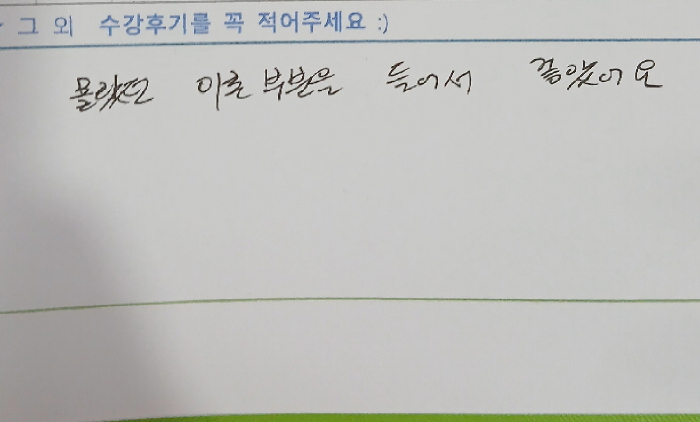 그 외 수강후기를 꼭 적어주세요 :)
몰랐던 이론 부분을 들어서 좋았어요